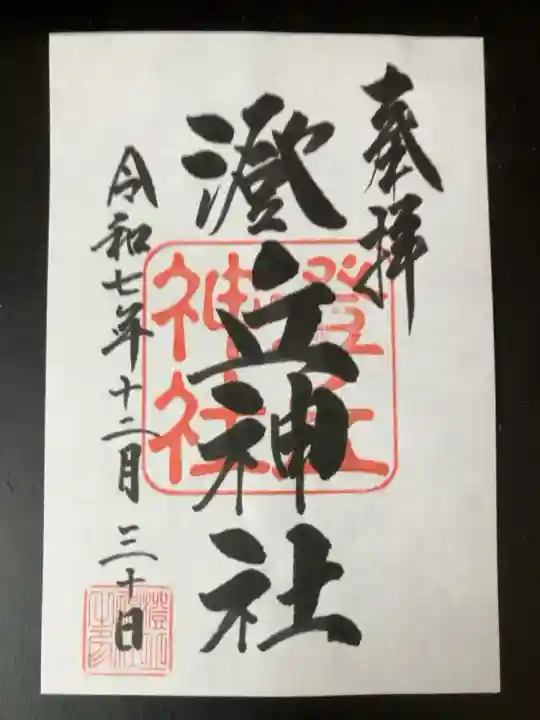 奉拝
澄立神社
令和七年十二月三十日
澄立
神社